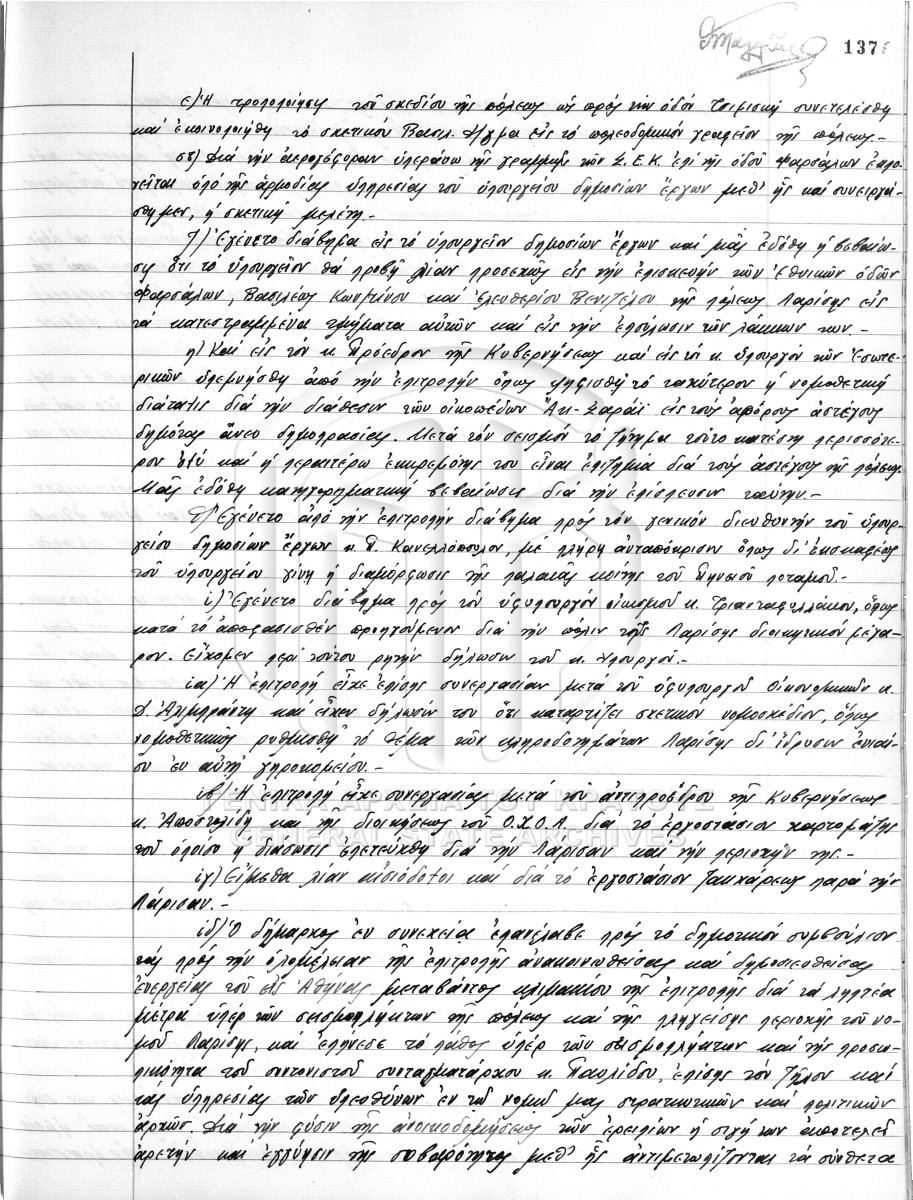 137
ε) Ἡ τροποποίησις τοῦ σχεδίου τῆς πόλεως ὡς πρός τήν ὁδόν Τσιμισκῆ συνετελέσθη
καί ἐκοινοποιήθη τό σχετικόν Βασιλ. Δ/γμα εἰς τό πολεοδομικόν γραφεῖον τῆς πόλεως.-
στ) Διά τήν ἀερογέφυραν ὑπεράνω τῆς γραμμῆς τῶν Σ.Ε.Κ. ἐπί τῆς ὁδοῦ Φαρσάλων ἐκπο-
νεῖται ὑπό τῆς ἁρμοδίας ὑπηρεσίας τοῦ ὑπουργείου δημοσίων ἔργων μεθ' ἧς καί συνειργά-
σθημεν, ἡ σχετική μελέτη.-
ζ) Ἐγένετο διάβημα εἰς τό ὑπουργεῖον δημοσίων ἔργων καί μᾶς ἐδόθη ἡ βεβαίω-
σις ὅτι τό ὑπουργεῖον θά προβῇ λίαν προσεχῶς εἰς τήν ἐπισκευήν τῶν ἐθνικῶν ὁδῶν
Φαρσάλων, Βασιλέως Κων/τίνου καί Ἐλευθερίου Βενιζέλου τῆς πόλεως Λαρίσης εἰς
τά κατεστραμμένα τμήματα αὐτῶν καί εἰς τήν ἐπούλωσιν τῶν λάκκων των.-
η) Καί εἰς τόν κ. Πρόεδρον τῆς Κυβερνήσεως καί εἰς τό κ. ὑπουργόν τῶν Ἐσωτε-
ρικῶν ὑπεμνήσθη ἀπό τήν ἐπιτροπήν ὅπως ψηφισθῇ τό ταχύτερον ἡ νομοθετική
διάταξις διά τήν διάθεσιν τῶν οἰκοπέδων Ἄκ-Σαράϊ εἰς τούς ἀπόρους ἀστέγους
δημότας ἄνευ δημοπρασίας. Μετά τόν σεισμόν τό ζήτημα τοῦτο κατέστη περισσότε-
ρον ὀξύ καί ἡ περαιτέρω ἐκκρεμότης του εἶναι ἐπιζημία διά τούς ἀστέγους τῆς πόλεως.
Μᾶς ἐδόθη κατηγορηματική βεβαίωσις διά τήν ἐπίσπευσιν ταύτην.-
θ) Ἐγένετο ἀπό τήν ἐπιτροπήν διάβημα πρός τόν γενικόν διευθυντήν τοῦ ὑπουρ-
γείου δημοσίων ἔργων κ. Π. Κανελλόπουλον, μέ πλήρη ἀνταπόκρισιν ὅπως δι' ἐκσκαφέως
τοῦ ὑπουργείου γίνῃ ἡ διαμόρφωσις τῆς παλαιᾶς κοίτης τοῦ Πηνειοῦ ποταμοῦ.-
ι) Ἐγένετο διάβημα πρός τόν ὑφυπουργόν οἰκισμοῦ κ. Τριανταφυλλάκον, ὅπως
κατά τό ἀποφασισθέν προηγούμενον διά τήν πόλιν τῆς Λαρίσης διοικητικόν μέγα-
ρον. Εἴχομεν περί τούτου ρητήν δήλωσιν τοῦ κ. Ὑπουργοῦ.-
ια) Ἡ ἐπιτροπή εἶχε ἐπίσης συνεργασίαν μετά τοῦ ὑφυπουργοῦ Οἰκονομικῶν κ.
Δ. Ἀλιμπράντη καί εἶχεν δήλωσίν του ὅτι καταρτίζει σχετικόν νομοσχέδιον, ὅπως
νομοθετικῶς ρυθμισθῇ τό θέμα τῶν κληροδοτημάτων Λαρίσης δι' ἵδρυσιν ἑνιαί-
ου ἐν αὐτῇ γηροκομείου.-
ιβ) Ἡ ἐπιτροπή εἶχε συνεργασίας μετά τοῦ ἀντιπροέδρου τῆς Κυβερνήσεως
κ. Ἀποστολίδη καί τῆς διοικήσεως τοῦ Ο.Χ.Ο.Α. διά τό ἐργοστάσιον χαρτομάζης
τοῦ ὁποίου ἡ διάσωσις ἐπετεύχθη διά τήν Λάρισαν καί τήν περιοχήν της.-
ιγ) Εἴμεθα λίαν αἰσιόδοξοι καί διά τό ἐργοστάσιον ζακχάρεως παρά τήν
Λάρισαν.-
ιδ) Ὁ δήμαρχος ἐν συνεχείᾳ ἐπανέλαβε πρός τό δημοτικόν συμβούλιον
τάς πρός τήν ὁλομέλειαν τῆς ἐπιτροπῆς ἀνακοινωθείσας καί δημοσιευθείσας
ἐνεργείας τοῦ εἰς Ἀθήνας μεταβάντος κλιμακίου τῆς ἐπιτροπῆς διά τά ληπτέα
μέτρα ὑπέρ τῶν σεισμοπλήκτων τῆς πόλεως καί τῆς πληγείσης περιοχῆς τοῦ νο-
μοῦ Λαρίσης, καί ἐπῄνεσε τό πάθος ὑπέρ τῶν σεισμοπλήκτων καί τῆς προσω-
πικότητα τοῦ συντονιστοῦ συνταγματάρχου κ. Παυλίδου, ἐπίσης τόν ζῆλον καί
τάς ὑπηρεσίας τῶν ὑπευθύνων ἐν τῷ νομῷ μας στρατιωτικῶν καί πολιτικῶν
ἀρχῶν. Διά τήν φύσιν τῆς ἀνοικοδομήσεως τῶν ἐρειπίων ἡ σιγή των ἀποτελεῖ
ἀρετήν καί ἐγγύησιν τῆς σοβαρότητος μεθ' ἧς ἀντιμετωπίζονται τά σύνθετα
ΓΕΝΙΚΑ ΑΡΧΕΙΑ ΤΟΥ ΚΡΑΤΟΥΣ
GENERAL STATE ARCHIVES